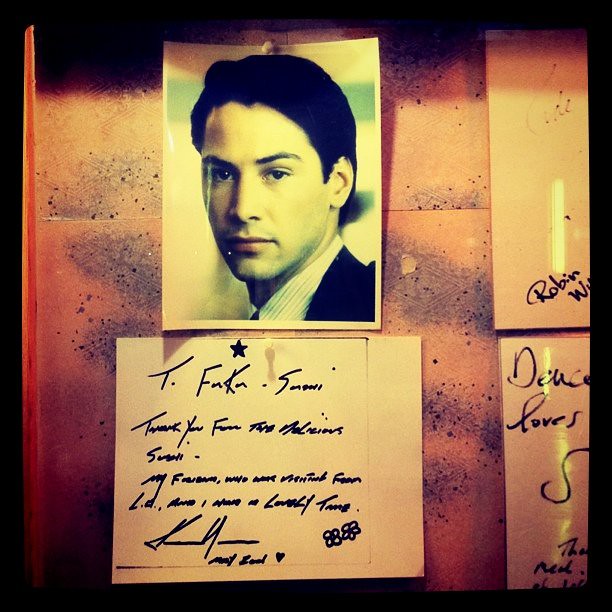 T. FuKu - Sushi
Thank You For The Delicious
Sushi -
My Friend, who was visiting From
L.A., And I Had A Lovely Time.
May 2001
Robin
Wi
Dance
loves
S
Tha